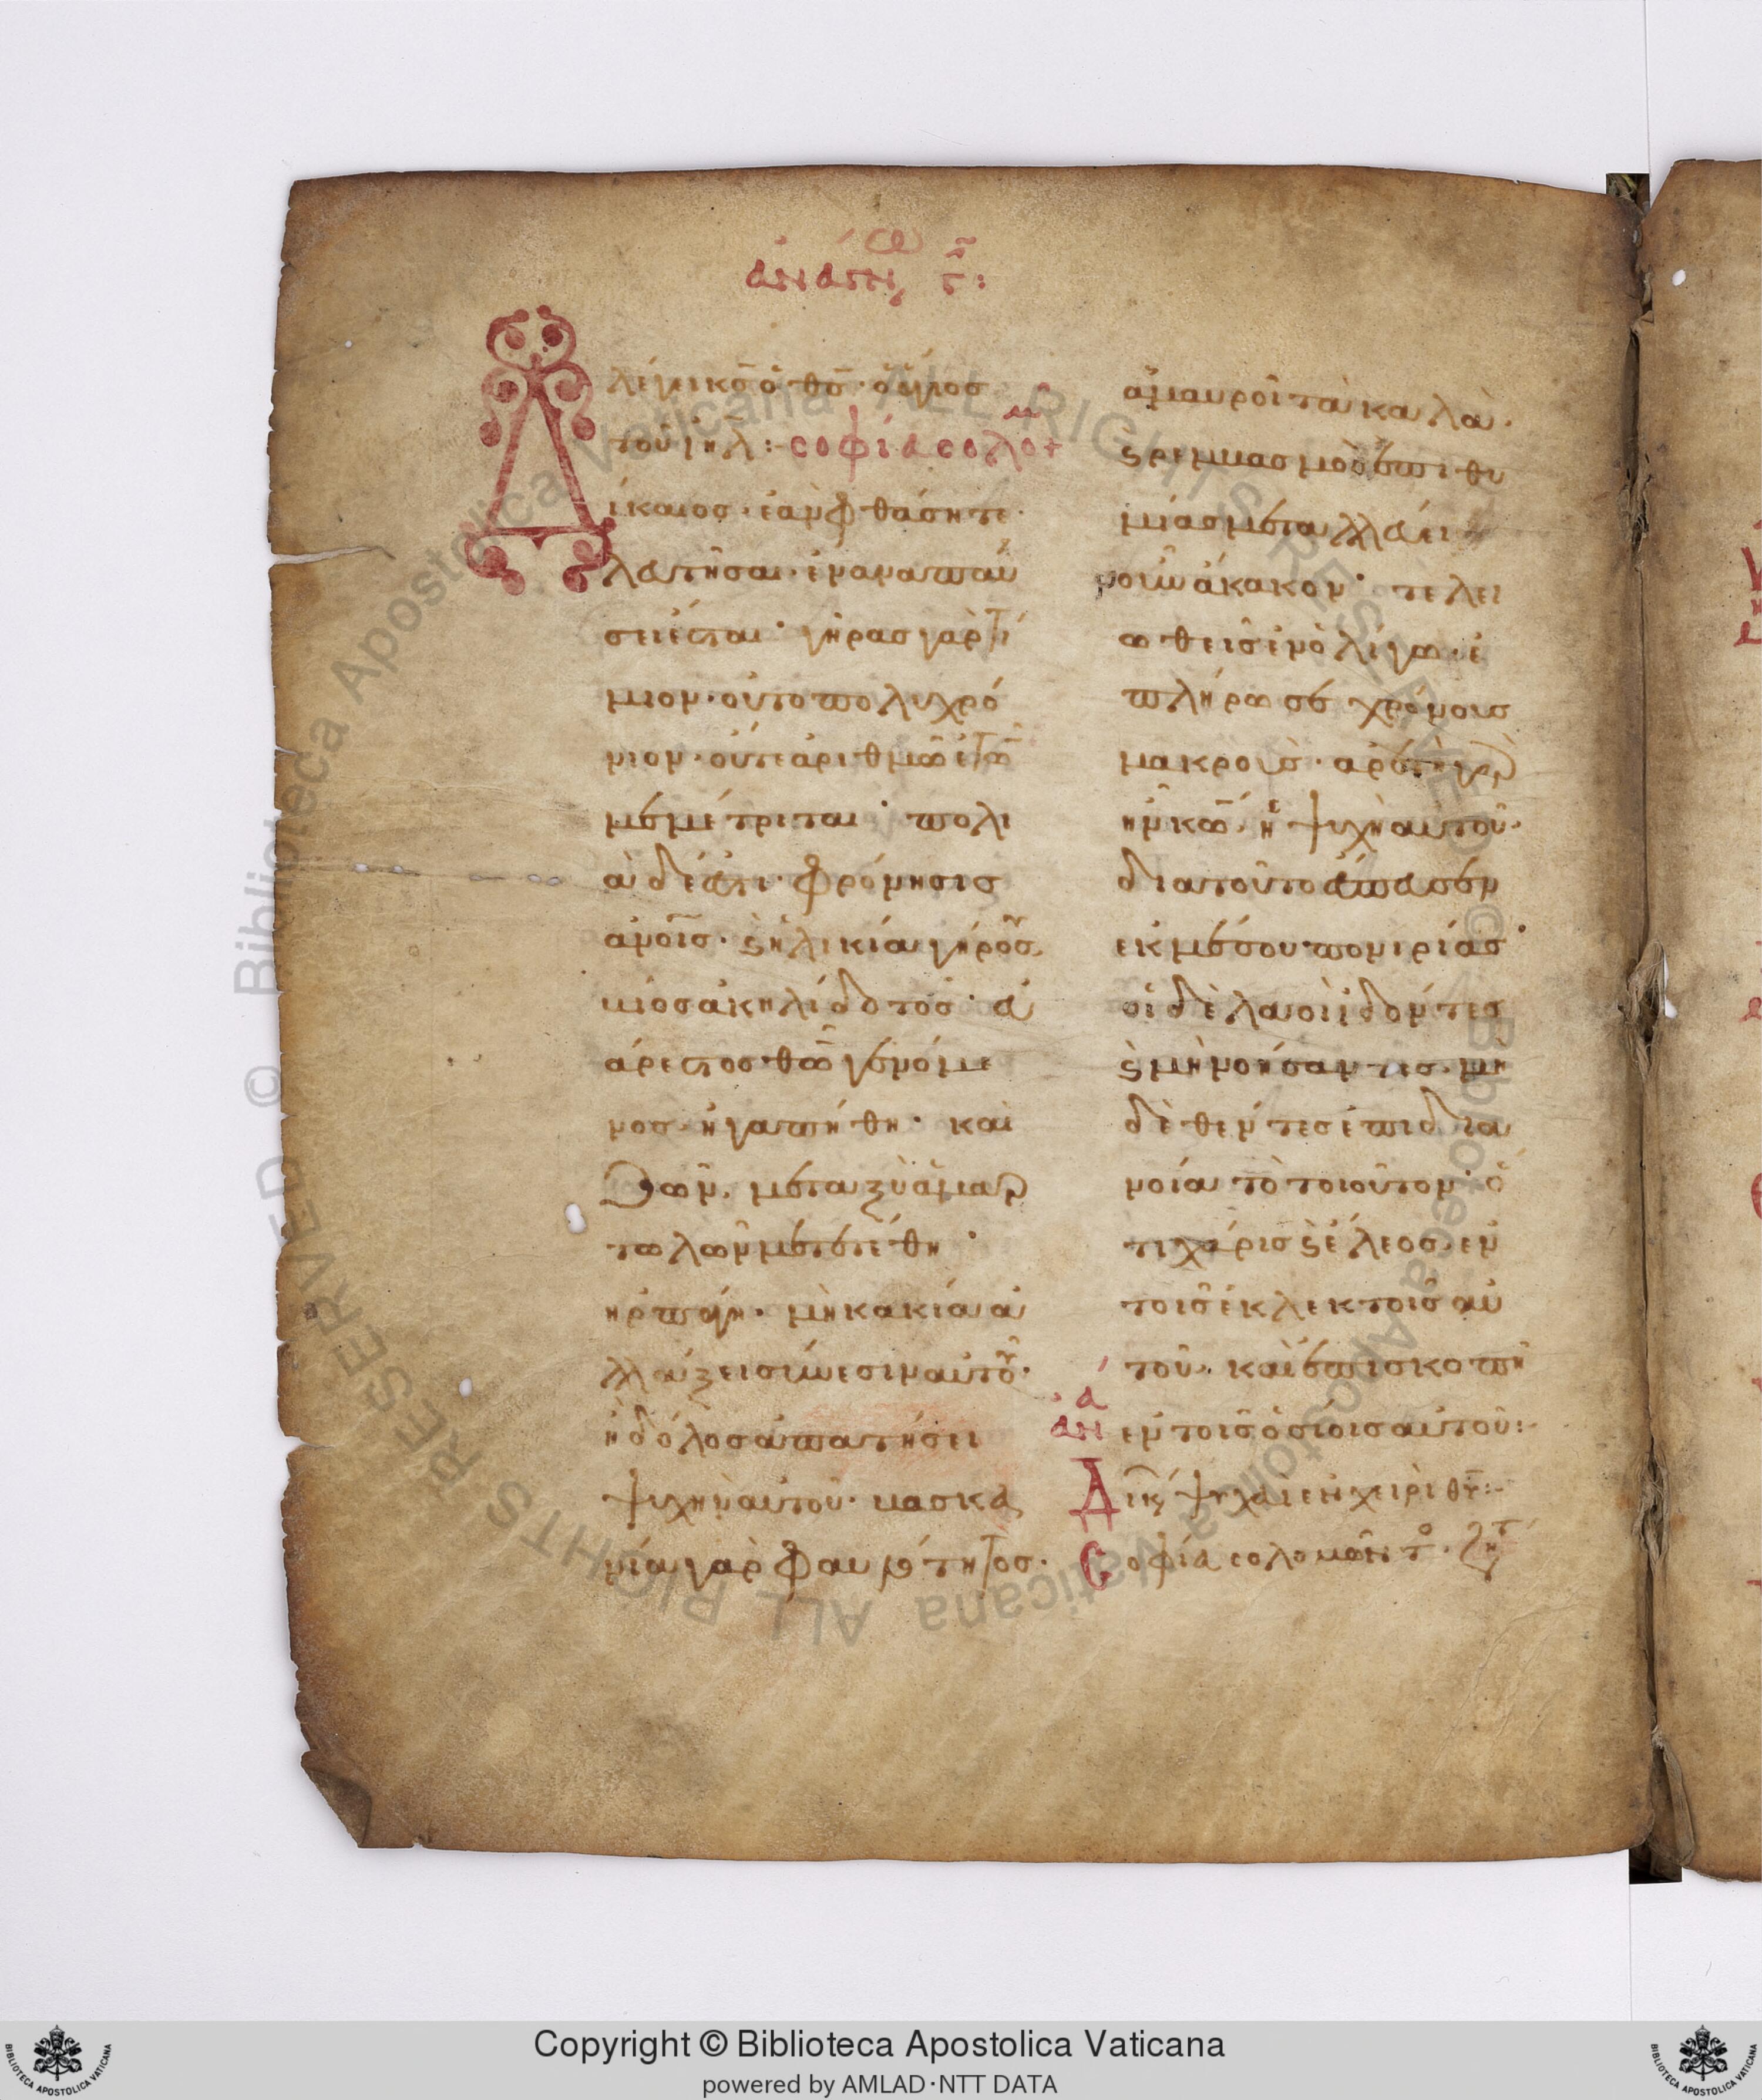 ἀνάγν, γ̄:
λέγει κ̅ς̅ ὁ θ̅ς̅· ὁ ἅγιος
τοῦ ι̅η̅λ̅:- σοφία σολομ
ίκαιος· ἐὰν φθάση τε
λευτῆσαι· ἐν ἀναπαύ
σει ἔσται· γῆρας γὰρ τί
μιον· οὐ τὸ πολυχρό
νιον· οὔτε ἀριθμῶ ἐτῶ
μεμέτριται· πολι
ὰ δέ ἐστι· φρόνησις
ἀνοις· ϗ ἡλικία γήρους
βιος ἀκηλίδοτος· εὐ
άρεστος θῶ γενόμε
νος ἠγαπήθη· καὶ
ζῶν· μεταξὺ ἁμαρ
τωλῶν μετετέθη·
ἡρπάγη· μὴ κακία ἀ
λλάξει σύνεσιν αὐτοῦ·
ἢ δόλος ἀπατήσει
ψυχὴν αὐτοῦ· βασκα
νία γὰρ φαυλότητος·
ἀμαυροῖ τὰ καλὰ·
ϗ ρεμβασμὸς ἐπιθυ
μίας μεταλλεύει
νοῦν ἄκακον· τελει
ωθεὶς ἐν ὀλίγω· ἐ
πλήρωσε χρόνους
μακροὺς· ἀρεστὴ γὰρ
ἦν κω, ἡ ψυχὴ αὐτοῦ·
διατοῦτο ἔσπευσεν
ἐκ μέσου πονιρίας·
οἱ δὲ λαοὶ ἰδόντες
ϗ μὴ νοήσαντες· μὴ
δὲ θέντες ἐπὶ δια
νοία τὸ τοιοῦτον· ὅ
τι χάρις ϗ ἔλεος· ἐν
τοῖς ἐκλεκτοῖς αὐ
τοῦ· καὶ ἐπισκοπὴ
ἀνα ἐν τοῖς ὁσίοις αὐτοῦ:-
Δικ, ψυχαὶ ἐν χειρὶ θυ:-
Σοφία σολομῶν τ. ζητ
Copyright © Biblioteca Apostolica Vaticana
powered by AMLAD·NTT DATA